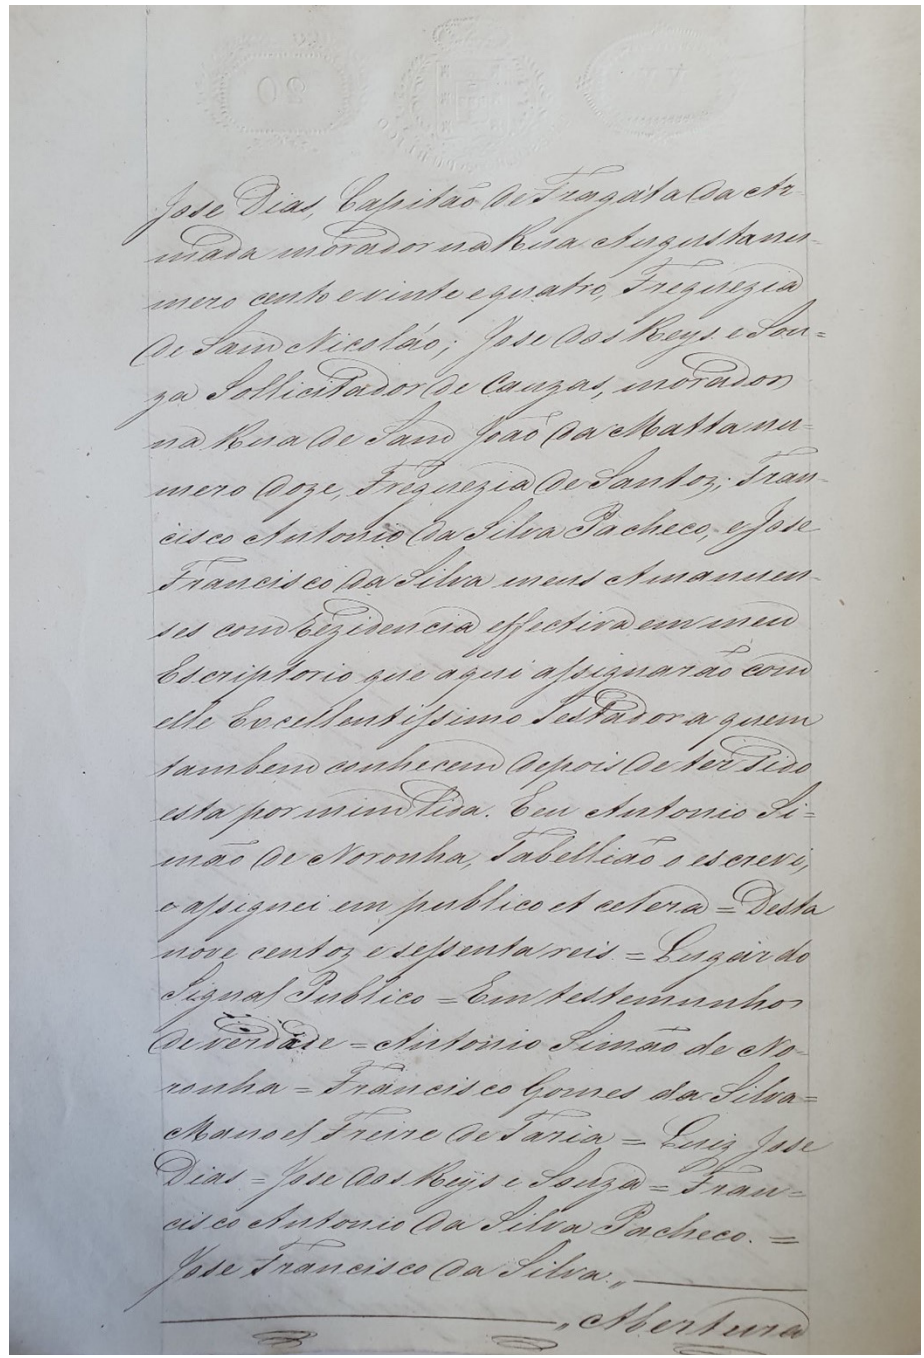 Jose Dias, Capitão de Fragata da Ar-
mada morador na Rua Augusta nu-
mero cento e vinte e quatro, Freguezia
de Sam Nicoláo; Jose dos Reys e Sou=
za Sollicitador de Cauzas, morador
na Rua de Sam João da Matta nu-
mero doze, Freguezia de Santoz; Fran-
cisco Antonio da Silva Pacheco, e Jose
Francisco da Silva meus Amanuen-
ses com Rezidencia effectiva em meu
Escriptorio que aqui assignarão com
elle Excellentissimo Testador a quem
tambem conhecem depois de ter sido
esta por mim lida. E eu Antonio Si=
mão de Noronha, Tabellião o escrevi,
e assignei em publico et cetera = Desta
nove centoz e sessenta reis = Lugar do
Signal Publico = Em testemunho
de verdade = Antonio Simão de No-
ronha = Francisco Gomes da Silva =
Manoel Freire de Faria = Luiz Jose
Dias = Jose dos Reys e Souza = Fran=
cisco Antonio da Silva Pacheco. =
Jose Francisco da Silva „
„ Abertura